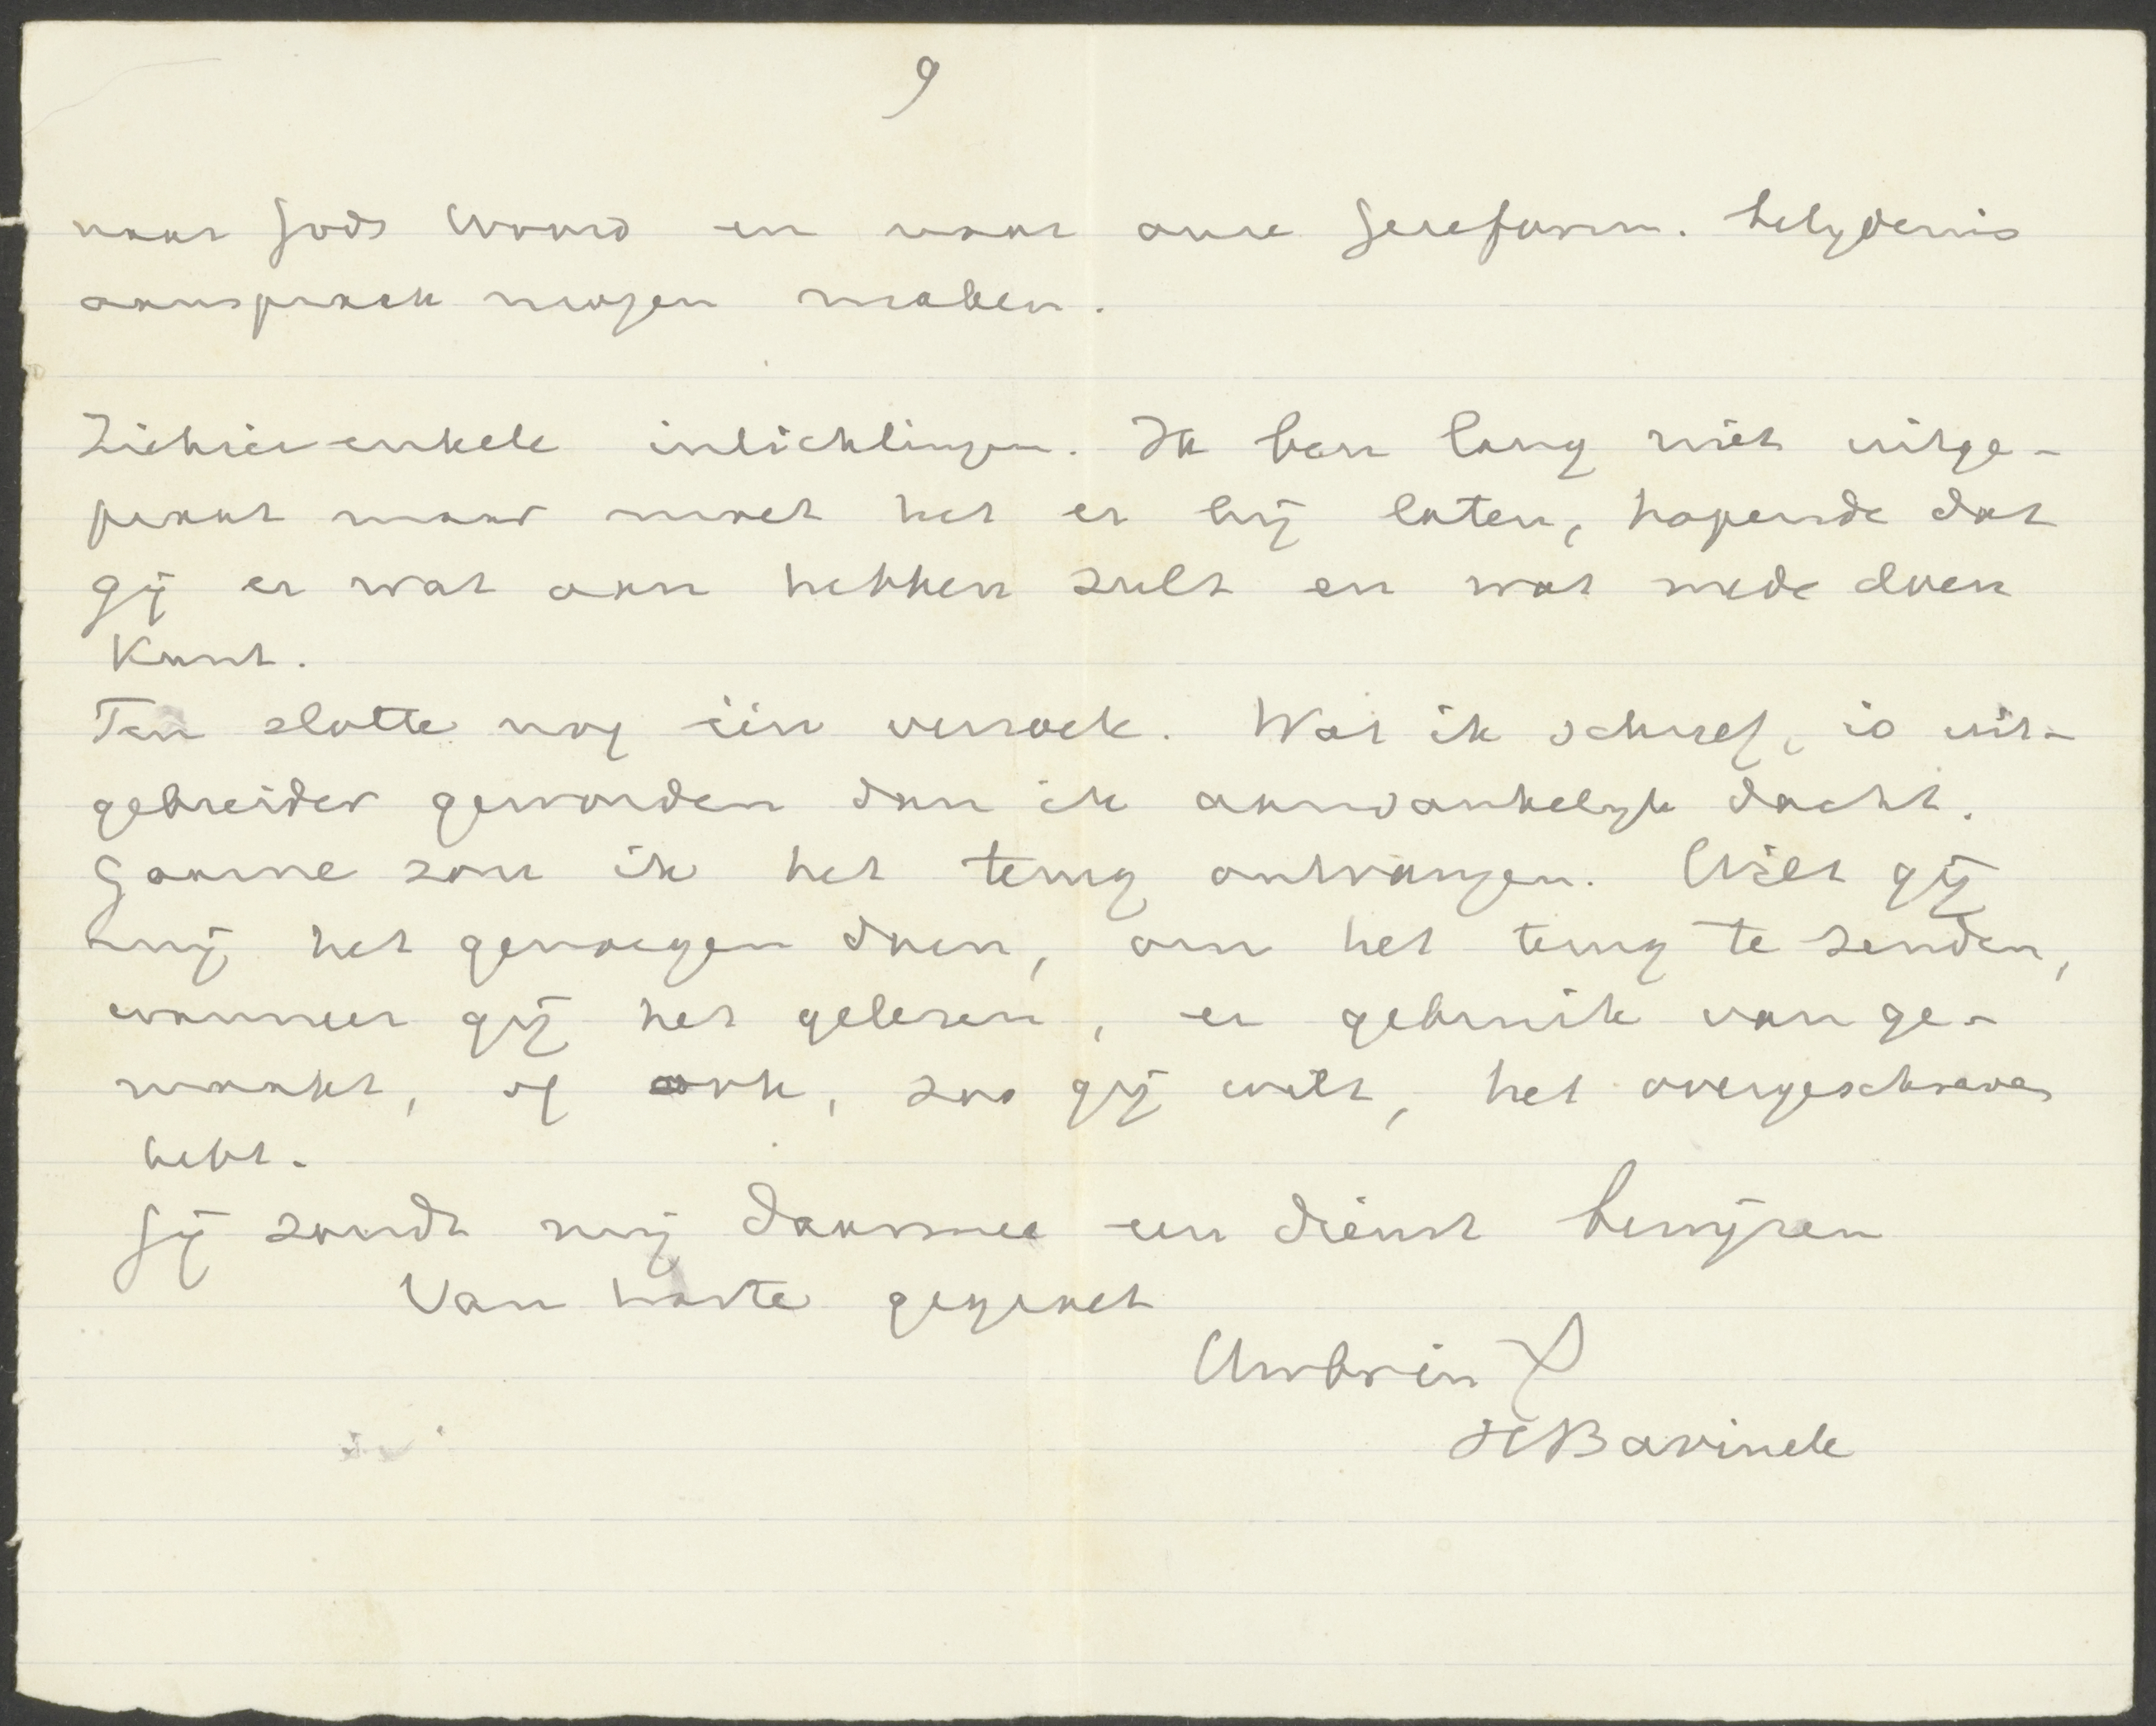 9
naar Gods Woord en naar onze Gereform. belydenis
aanspraak mogen maken.
Ziehier enkele inlichtingen. Ik ben lang niet uitge-
praat maar moet het er bij laten, hopende dat
gij er wat aan hebben zult en wat mede doen
kunt.
Ten slotte nog één verzoek. Wat ik schreef, is uit-
gebreider geworden dan ik aanvankelyk dacht.
Gaarne zou ik het terug ontvangen. Wilt gij
mij het genoegen doen, om het terug te zenden,
wanneer gij het gelezen, er gebruik van ge-
maakt, of ook, zoo gij wilt, het overgeschreven
hebt.
Gij zoudt mij daarmee een dienst bewijzen
Van harte gegroet
Uw br in X
H Bavinck